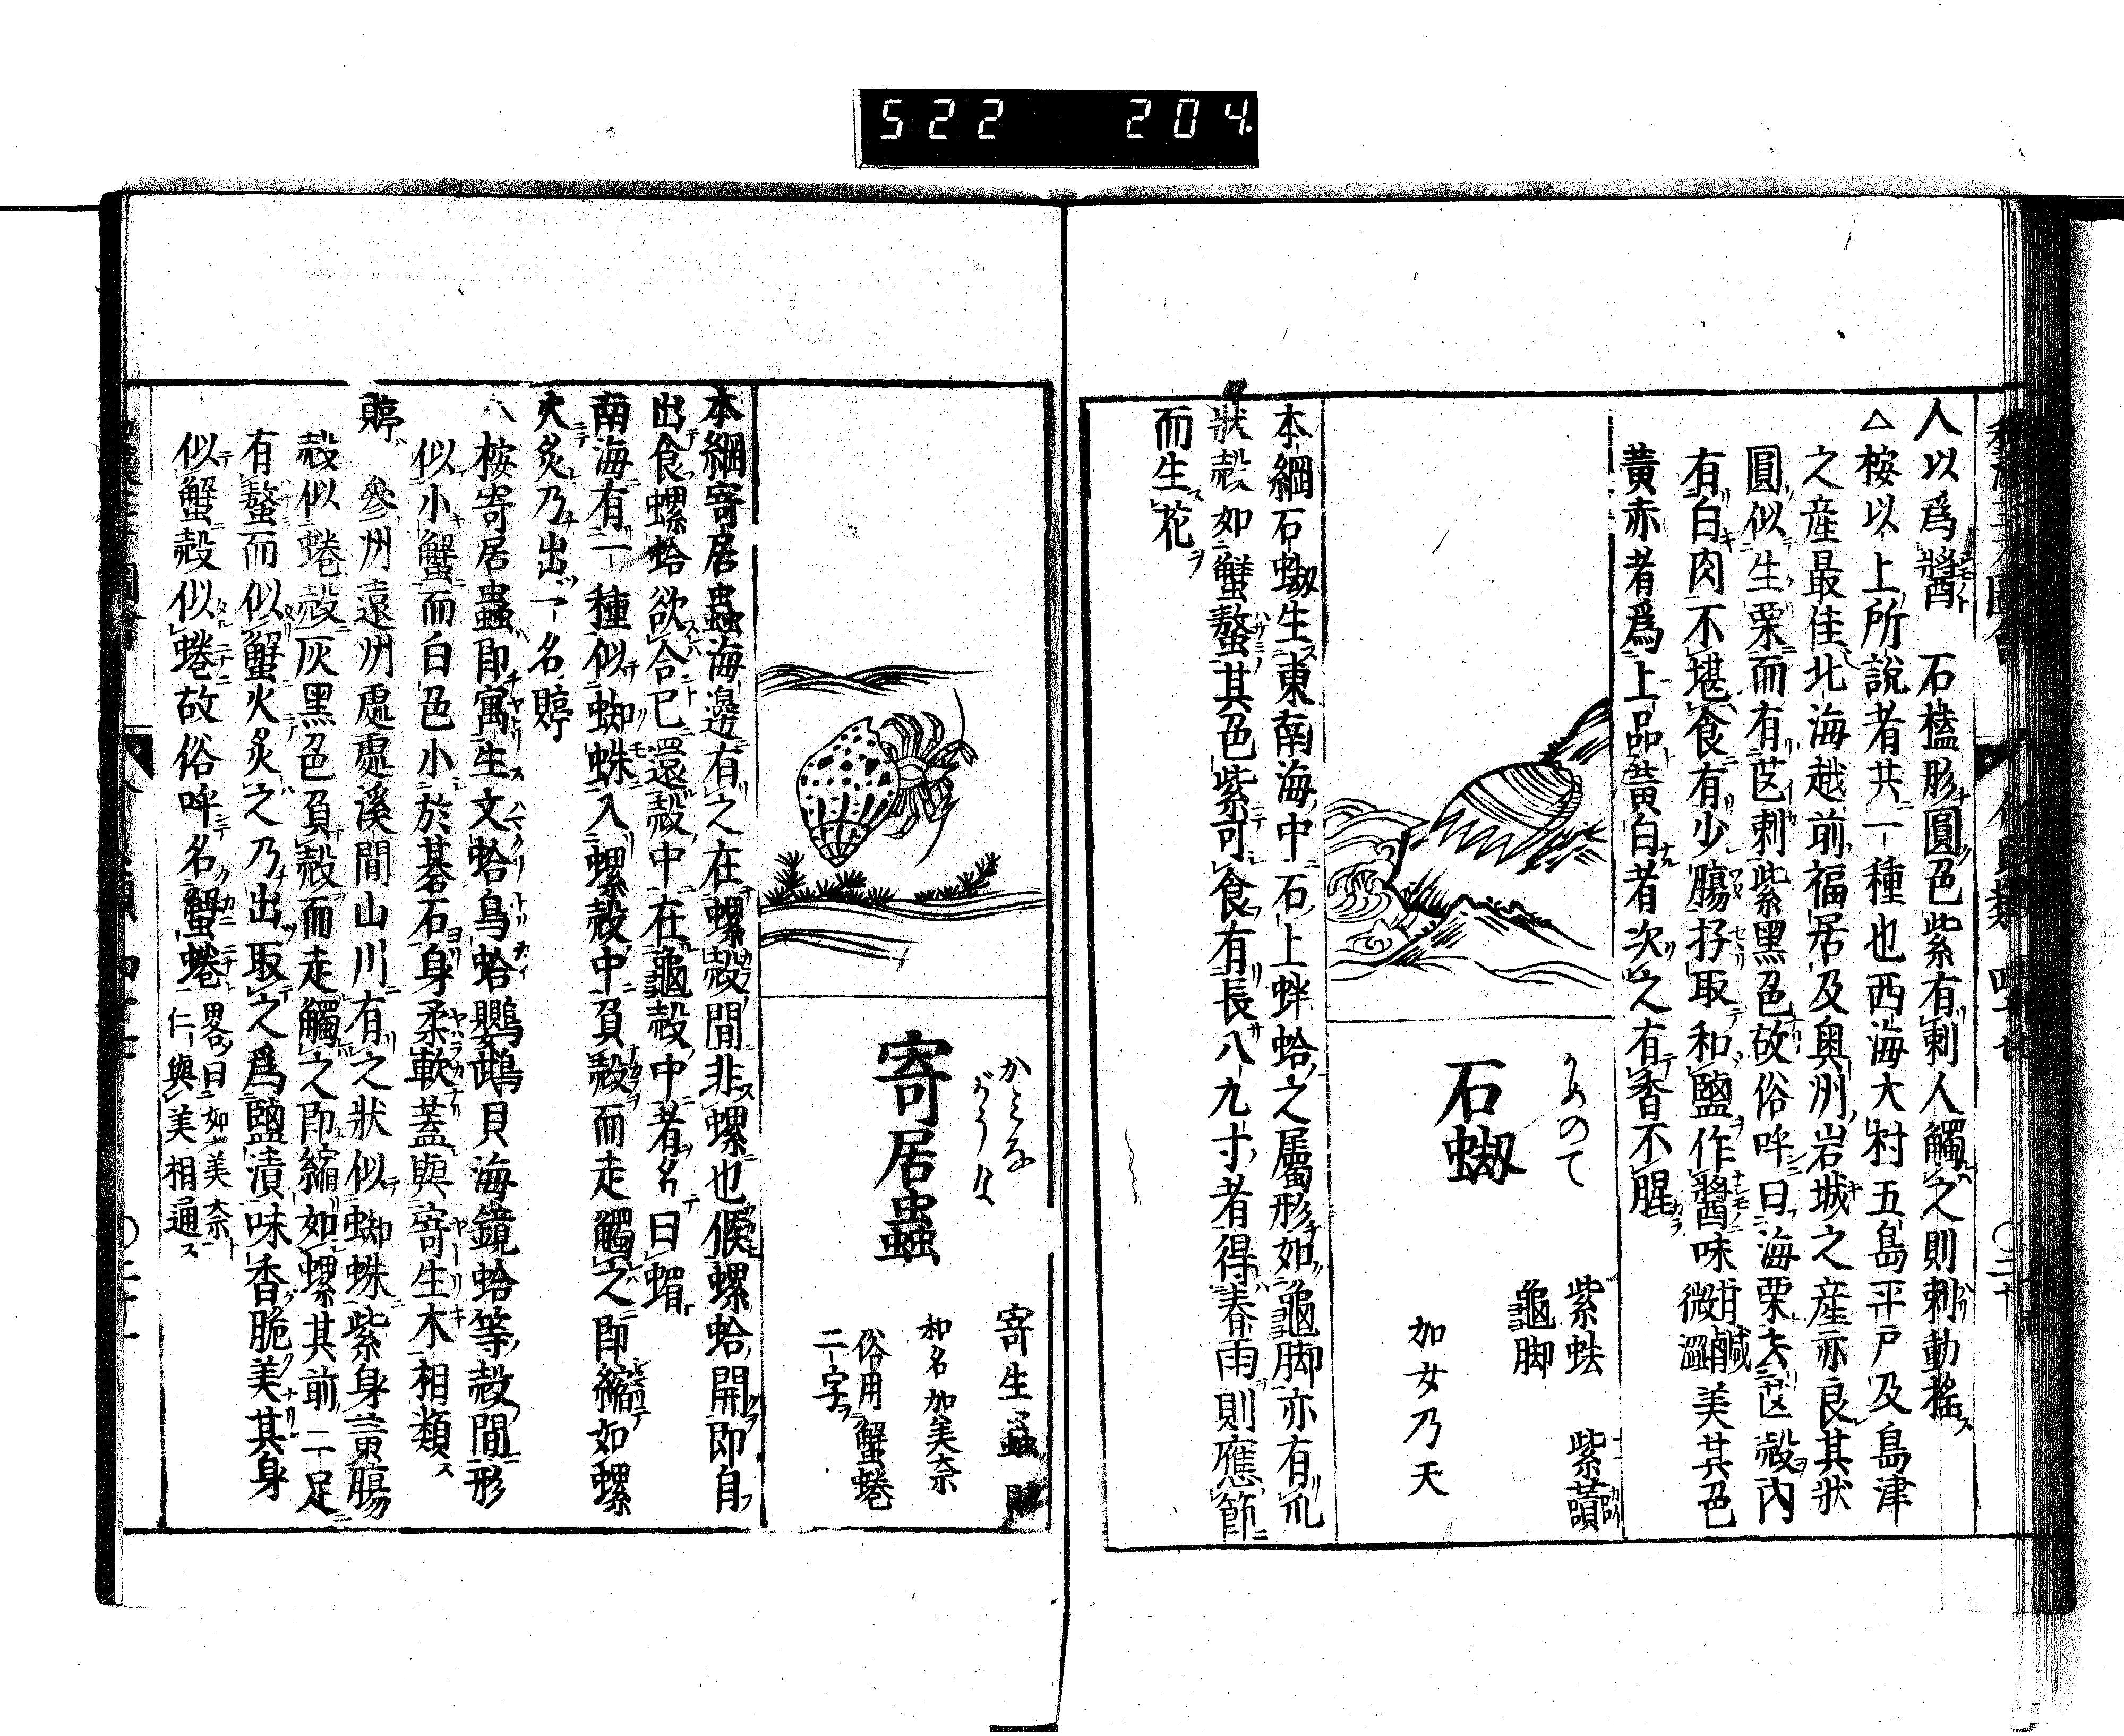 522 204.
人以爲醬 石榼形圓色紫有刺人觸之則刺動搖
△桉以上所說者共一種也西海大村五島平戸及島津
之産最佳北海越前福居及奥州岩城之産亦良其狀
圓似生栗而有芒刺紫黑色故俗呼曰海栗去殻内
有白肉不堪食有少膓抒取和鹽作醬味甘鹹微澀美其色
黃赤者爲上品黃白者次之有香不腥
かめのて
石蜐
紫蚨 紫𧄎
龜脚
加女乃天
本綱石蜐生東南海中石上蚌蛤之屬形如龜脚亦有爪
狀殻如蟹螯其色紫可食有長八九寸者得春雨則應節
而生花
かみな
がうな
寄居蟲
寄生蟲
和名加美奈
俗用蟹蜷
二字
本綱寄居蟲海邊有之在螺殻間非螺也候螺蛤開即自
出食螺蛤欲合已還殻中在龜殻中者名曰蝞
南海有一種似蜘蛛入螺殻中負殻而走觸之即縮如螺
火炙乃出一名𧐖
桉寄居蟲即寓生文蛤鳥蛤鸚鵡貝海鏡蛤等殻間形
似小蟹而白色小於碁石身柔軟蓋與寄生木相類
參州遠州處處溪間山川有之狀似蜘蛛紫身黃膓
殻似蜷殻灰黑色負殻而走觸之即縮如螺其前二足
有螯而似蟹火炙之乃出取之爲鹽漬味香脆美其身
似蟹殻似蜷故俗呼名蟹蜷畧曰如美奈
仁與美相通